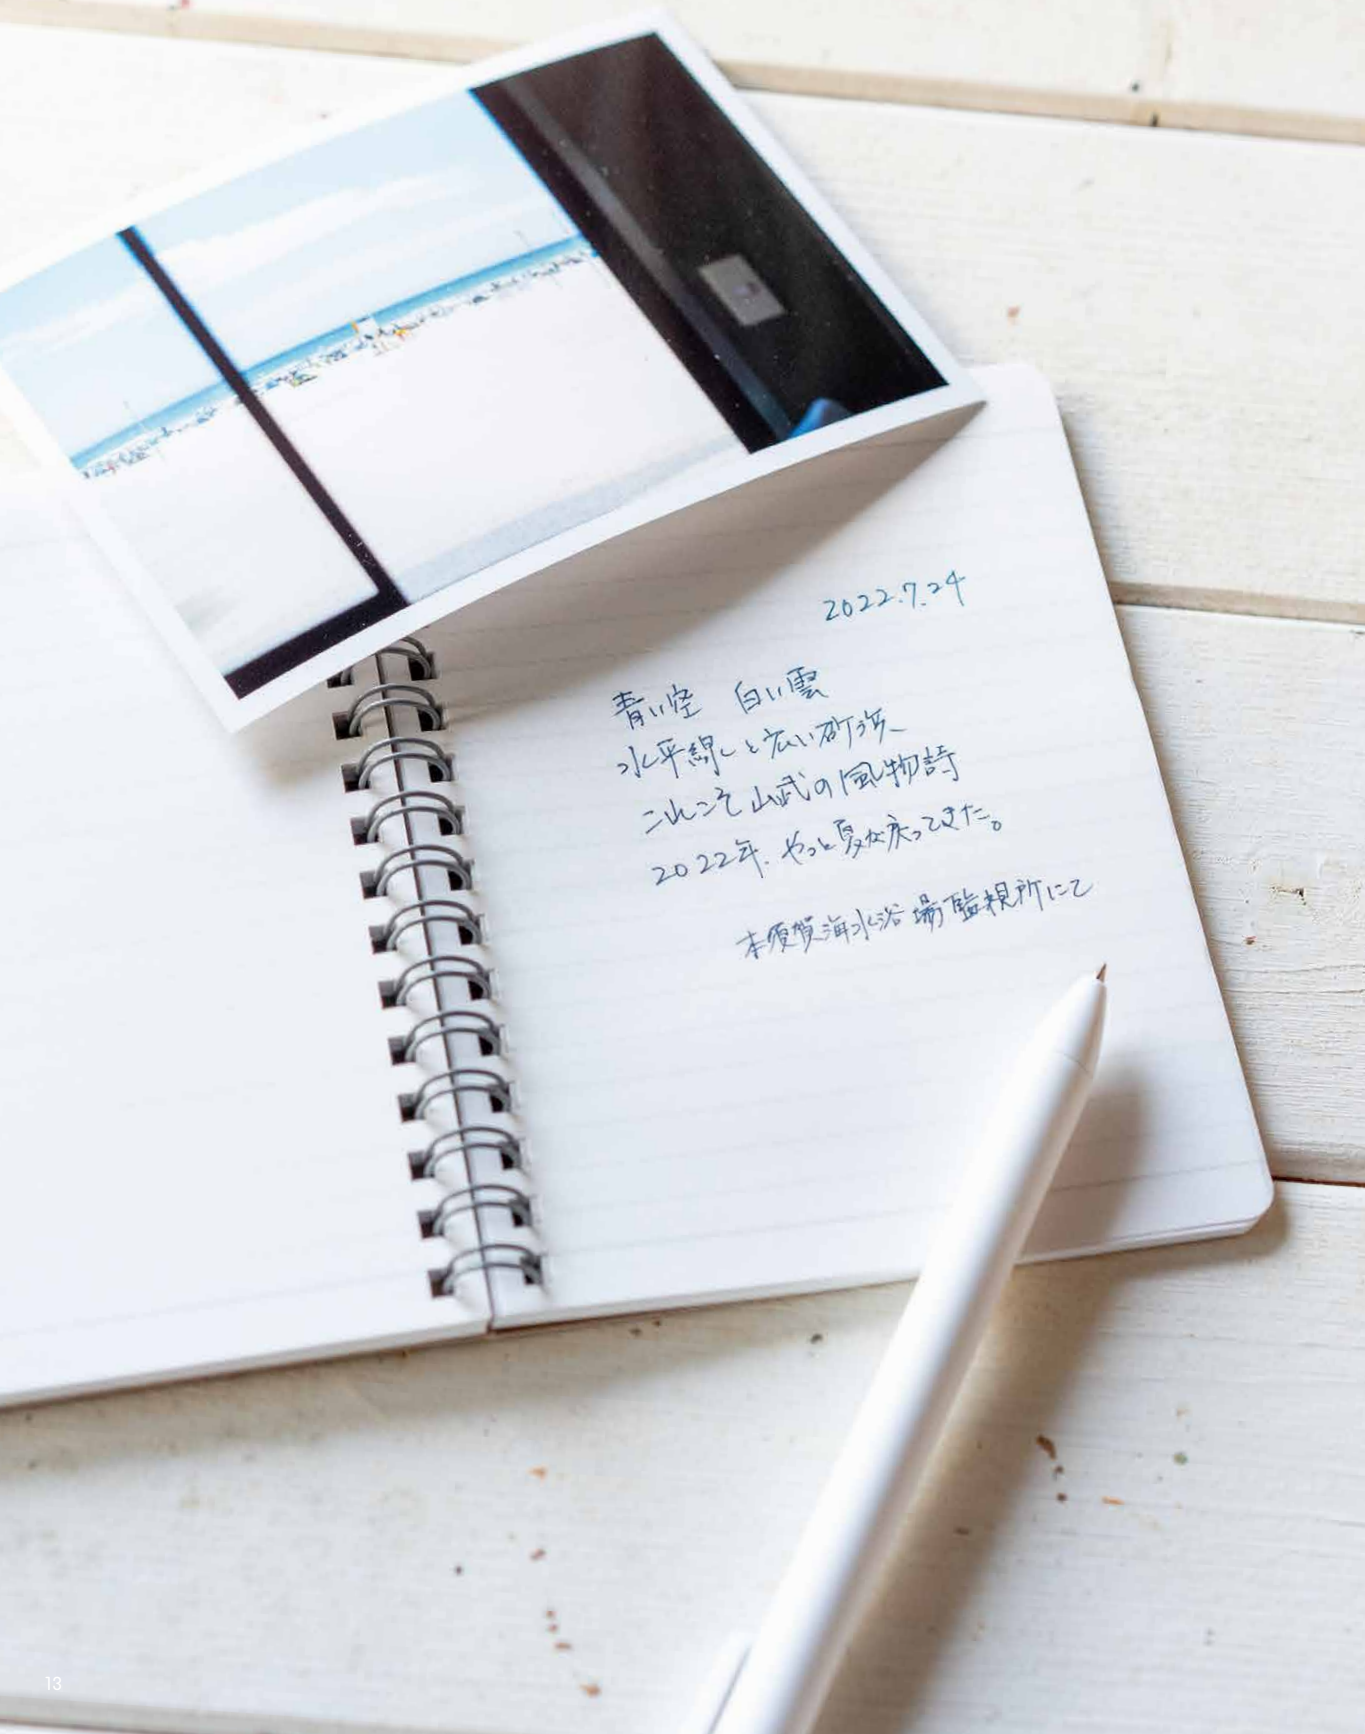 2022.7.24
青い空 白い雲
水平線と広い砂浜
これこそ山武の風物詩
2022年、やっと夏が戻ってきた。
本須賀海水浴場監視所にて
13